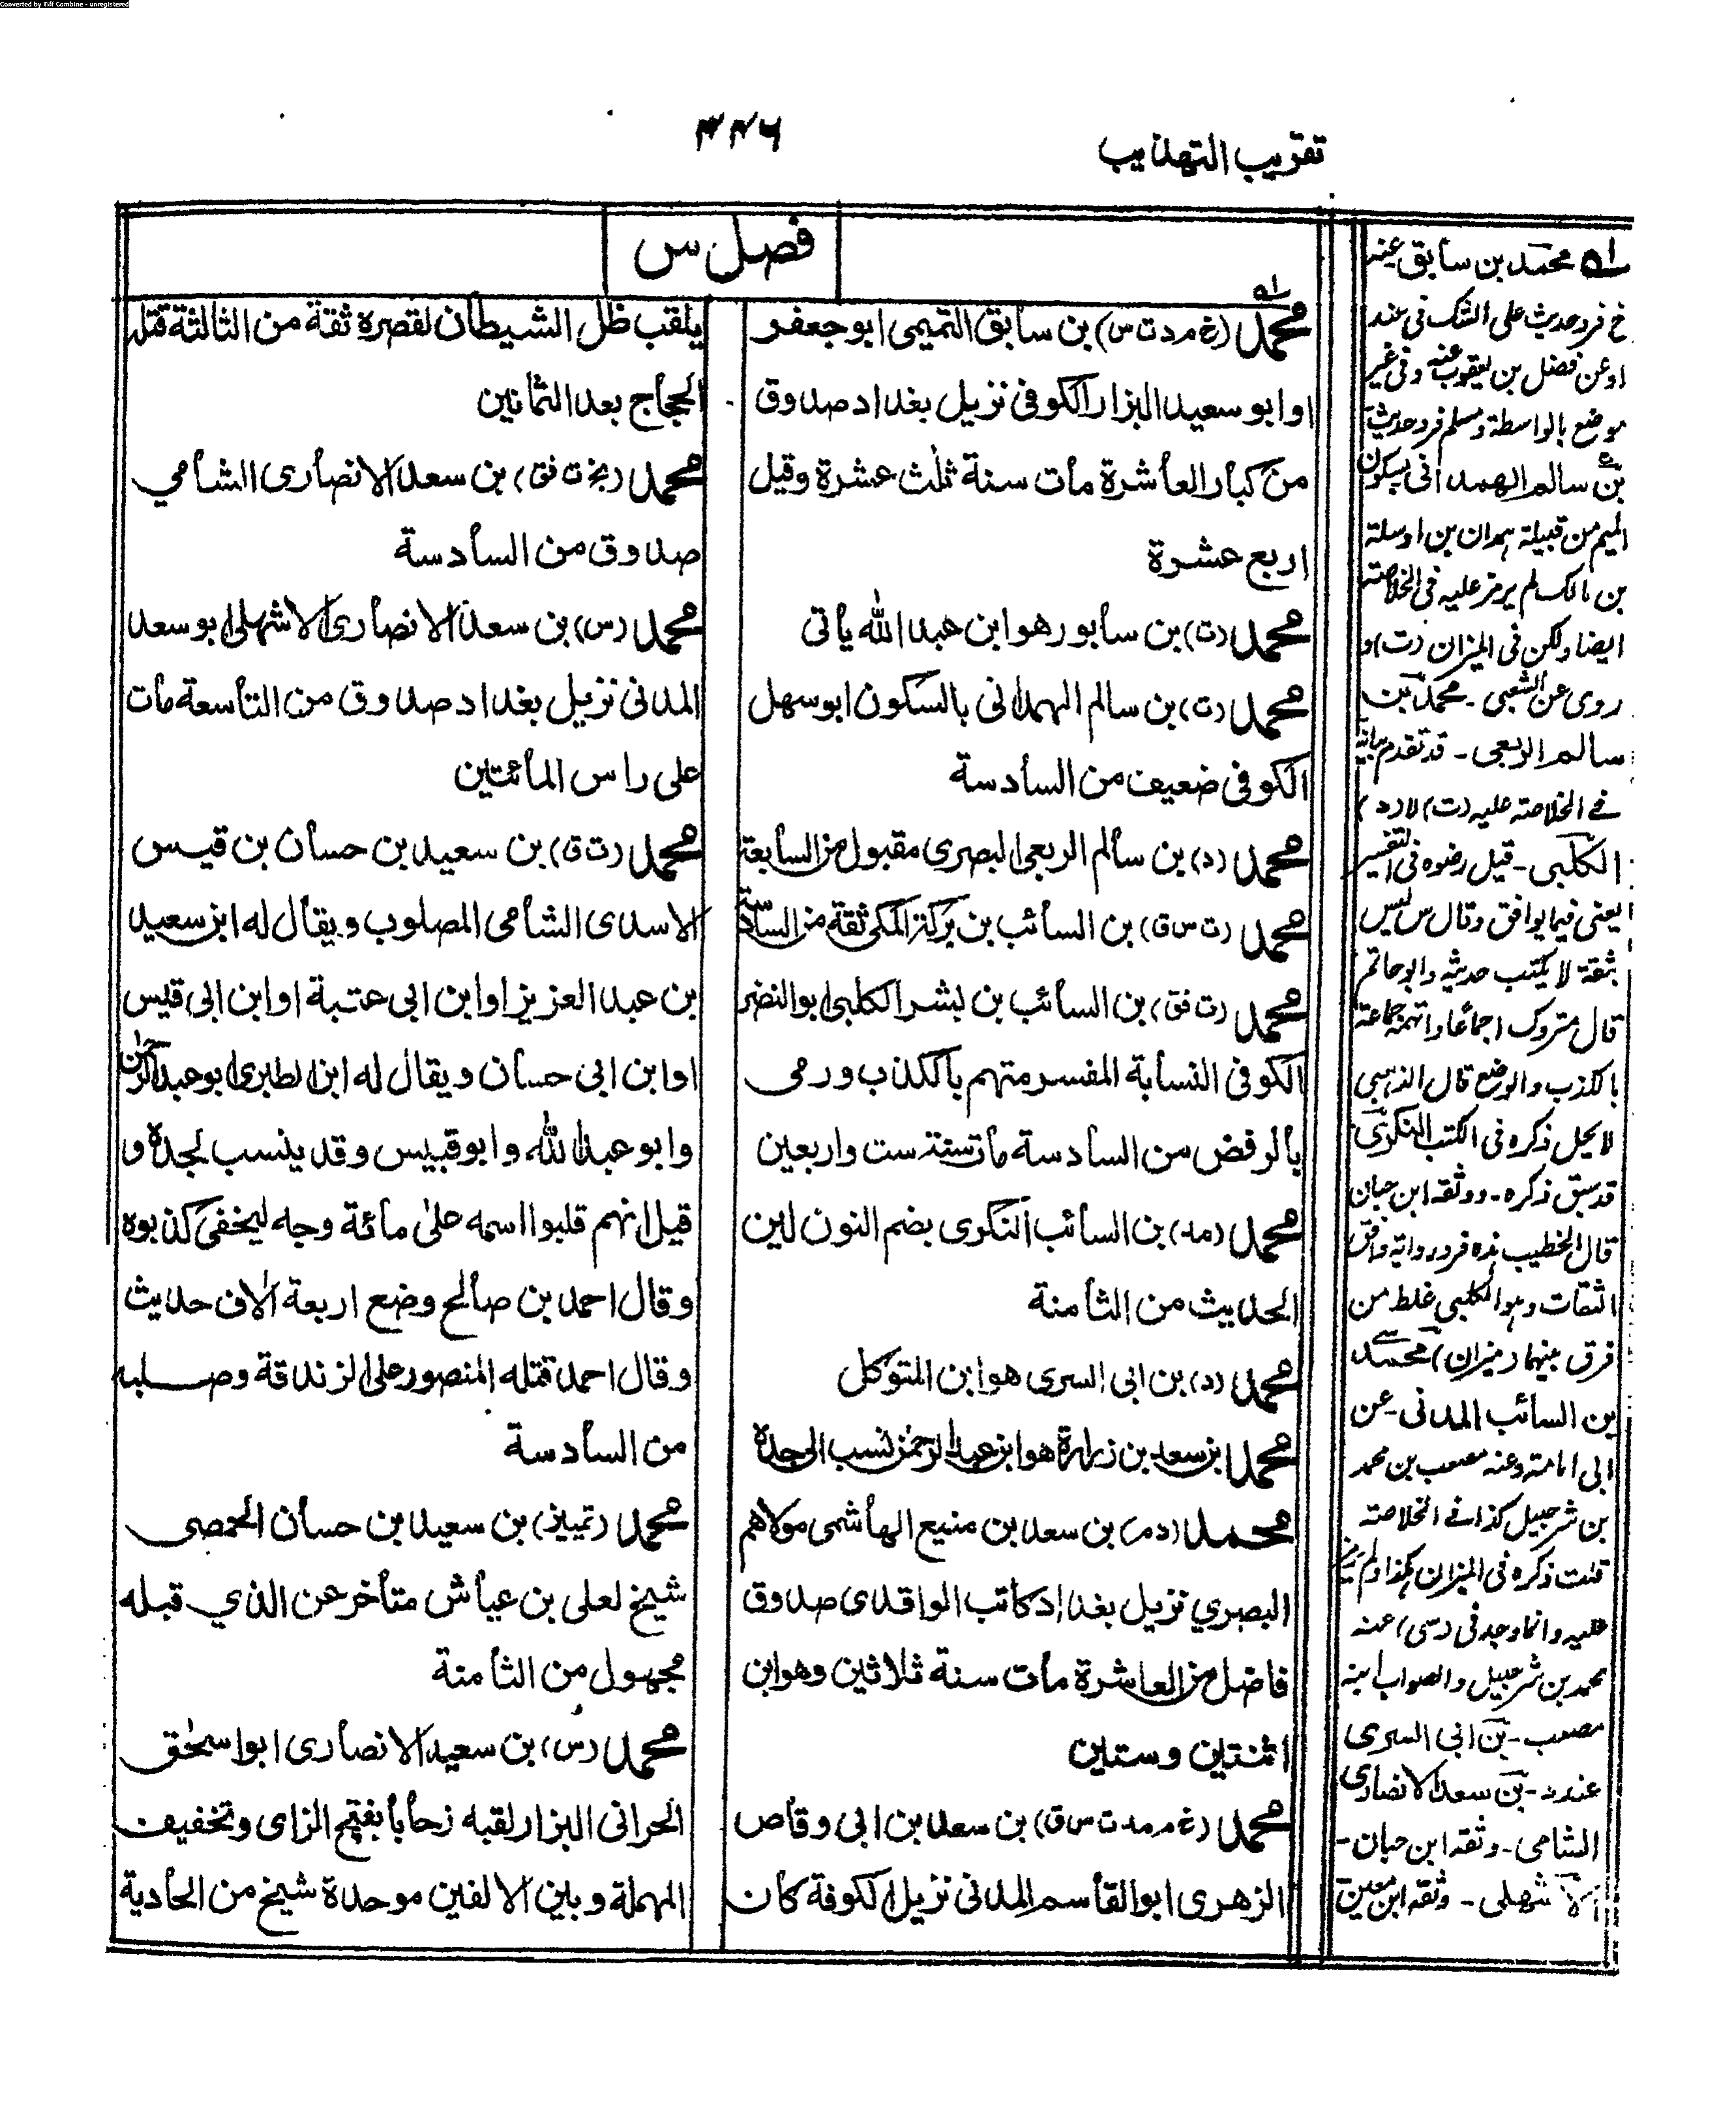 Converted by Tiff Combine - unregistered
تقريب التهذيب
۳۲۶
فصل س
محمد (خ م د ت س) بن سابق التميمى ابو جعفر
او ابو سعيد البزار الكوفى نزيل بغداد صدوق
من كبار العاشرة مات سنة ثلث عشرة وقيل
اربع عشرة
محمد (ت) بن سابور هو ابن عبد الله يأتى
محمد (ت) بن سالم الهمدانى بالسكون ابو سهل
الكوفى ضعيف من السادسة
محمد (د) بن سالم الربعى البصرى مقبول من السابعة
محمد (ت س ق) بن السائب بن بركة المكى ثقة من السادسة
محمد (ت فق) بن السائب بن بشر الكلبى ابو النضر
الكوفى النسابة المفسر متهم بالكذب ورمى
بالرفض من السادسة مات سنة ست واربعين
محمد (مد) بن السائب النكرى بضم النون لين
الحديث من الثامنة
محمد (د) بن ابى السرى هو ابن المتوكل
محمد ابن سعد بن زرارة هو ابن عبد الرحمن نسب الى جده
محمد (د) بن سعد بن منيع الهاشمى مولاهم
البصري نزيل بغداد كاتب الواقدى صدوق
فاضل من العاشرة مات سنة ثلاثين وهو ابن
اثنتين وستين
محمد (خ م مد ت س ق) بن سعد بن ابى وقاص
الزهرى ابو القاسم المدنى نزيل الكوفة كان
يلقب ظل الشيطان لقصره ثقة من الثالثة قتله
الحجاج بعد الثمانين
محمد (بخ ت فق) بن سعد الانصارى الشامي
صدوق من السادسة
محمد (س) بن سعد الانصارى الاشهلى ابو سعد
المدنى نزيل بغداد صدوق من التاسعة مات
على راس المائتين
محمد (ت ق) بن سعيد بن حسان بن قيس
الاسدى الشامى المصلوب ويقال له ابن سعيد
بن عبد العزيز او ابن ابى عتبة او ابن ابى قيس
او ابن ابى حسان ويقال له ابن الطبرى ابو عبد الرحمن
وابو عبد الله وابو قبيس وقد ينسب لجده و
قيل انهم قلبوا اسمه على مائة وجه ليخفى كذبوه
وقال احمد بن صالح وضع اربعة الاف حديث
وقال احمد قتله المنصور على الزندقة وصلبه
من السادسة
محمد (تمييز) بن سعيد بن حسان الحمصى
شيخ لعلى بن عياش متأخر عن الذي قبله
مجهول من الثامنة
محمد (س) بن سعيد الانصارى ابو اسحق
الحرانى البزار لقبه زحابا بفتح الزاى وتخفيف
المهملة وبين الالفين موحدة شيخ من الحادية
محمد بن سابق عنه
خ فرد حديث على الشك فى عنه
او عن فضل بن يعقوب عنه وفى غير
موضع بالواسطة ومسلم فرد حديث
بن سالم الهمدانى بسكون
الميم من قبيلة همدان بن اوسلة
بن مالك لم يرمز عليه فى الخلاصة
ايضا ولكن فى الميزان (ت) و
روى عن الشعبى - محمد بن
سالم الربعى - قد تقدم بيانه
فى الخلاصة عليه (ت) لا (د)
الكلبى - قيل رضوه فى التفسير
يعنى فيما يوافق وقال س ليس
بثقة لا يكتب حديثه وابو حاتم
قال متروك اجماعا واتهمه جماعة
بالكذب والوضع قال الذهبى
لا يحل ذكره فى الكتب النكرى
قد سبق ذكره - ووثقه ابن حبان
قال الخطيب هذه فرد رواته وافق
الثقات وهو الكلبى غلط من
فرق بينهما (ميزان) محمد
بن السائب المدنى - عن
ابى امامة وعنه مصعب بن محمد
بن شرحبيل كذا فى الخلاصة
قلت ذكره فى الميزان هكذا ولم يرمز
عليه وانما وجد فى (سى) عنه
محمد بن شرحبيل والصواب ابنه
مصعب - بن ابى السرى
بن سعد الانصارى
الشامى - وثقه ابن حبان -
الاشهلى - وثقه ابن معين